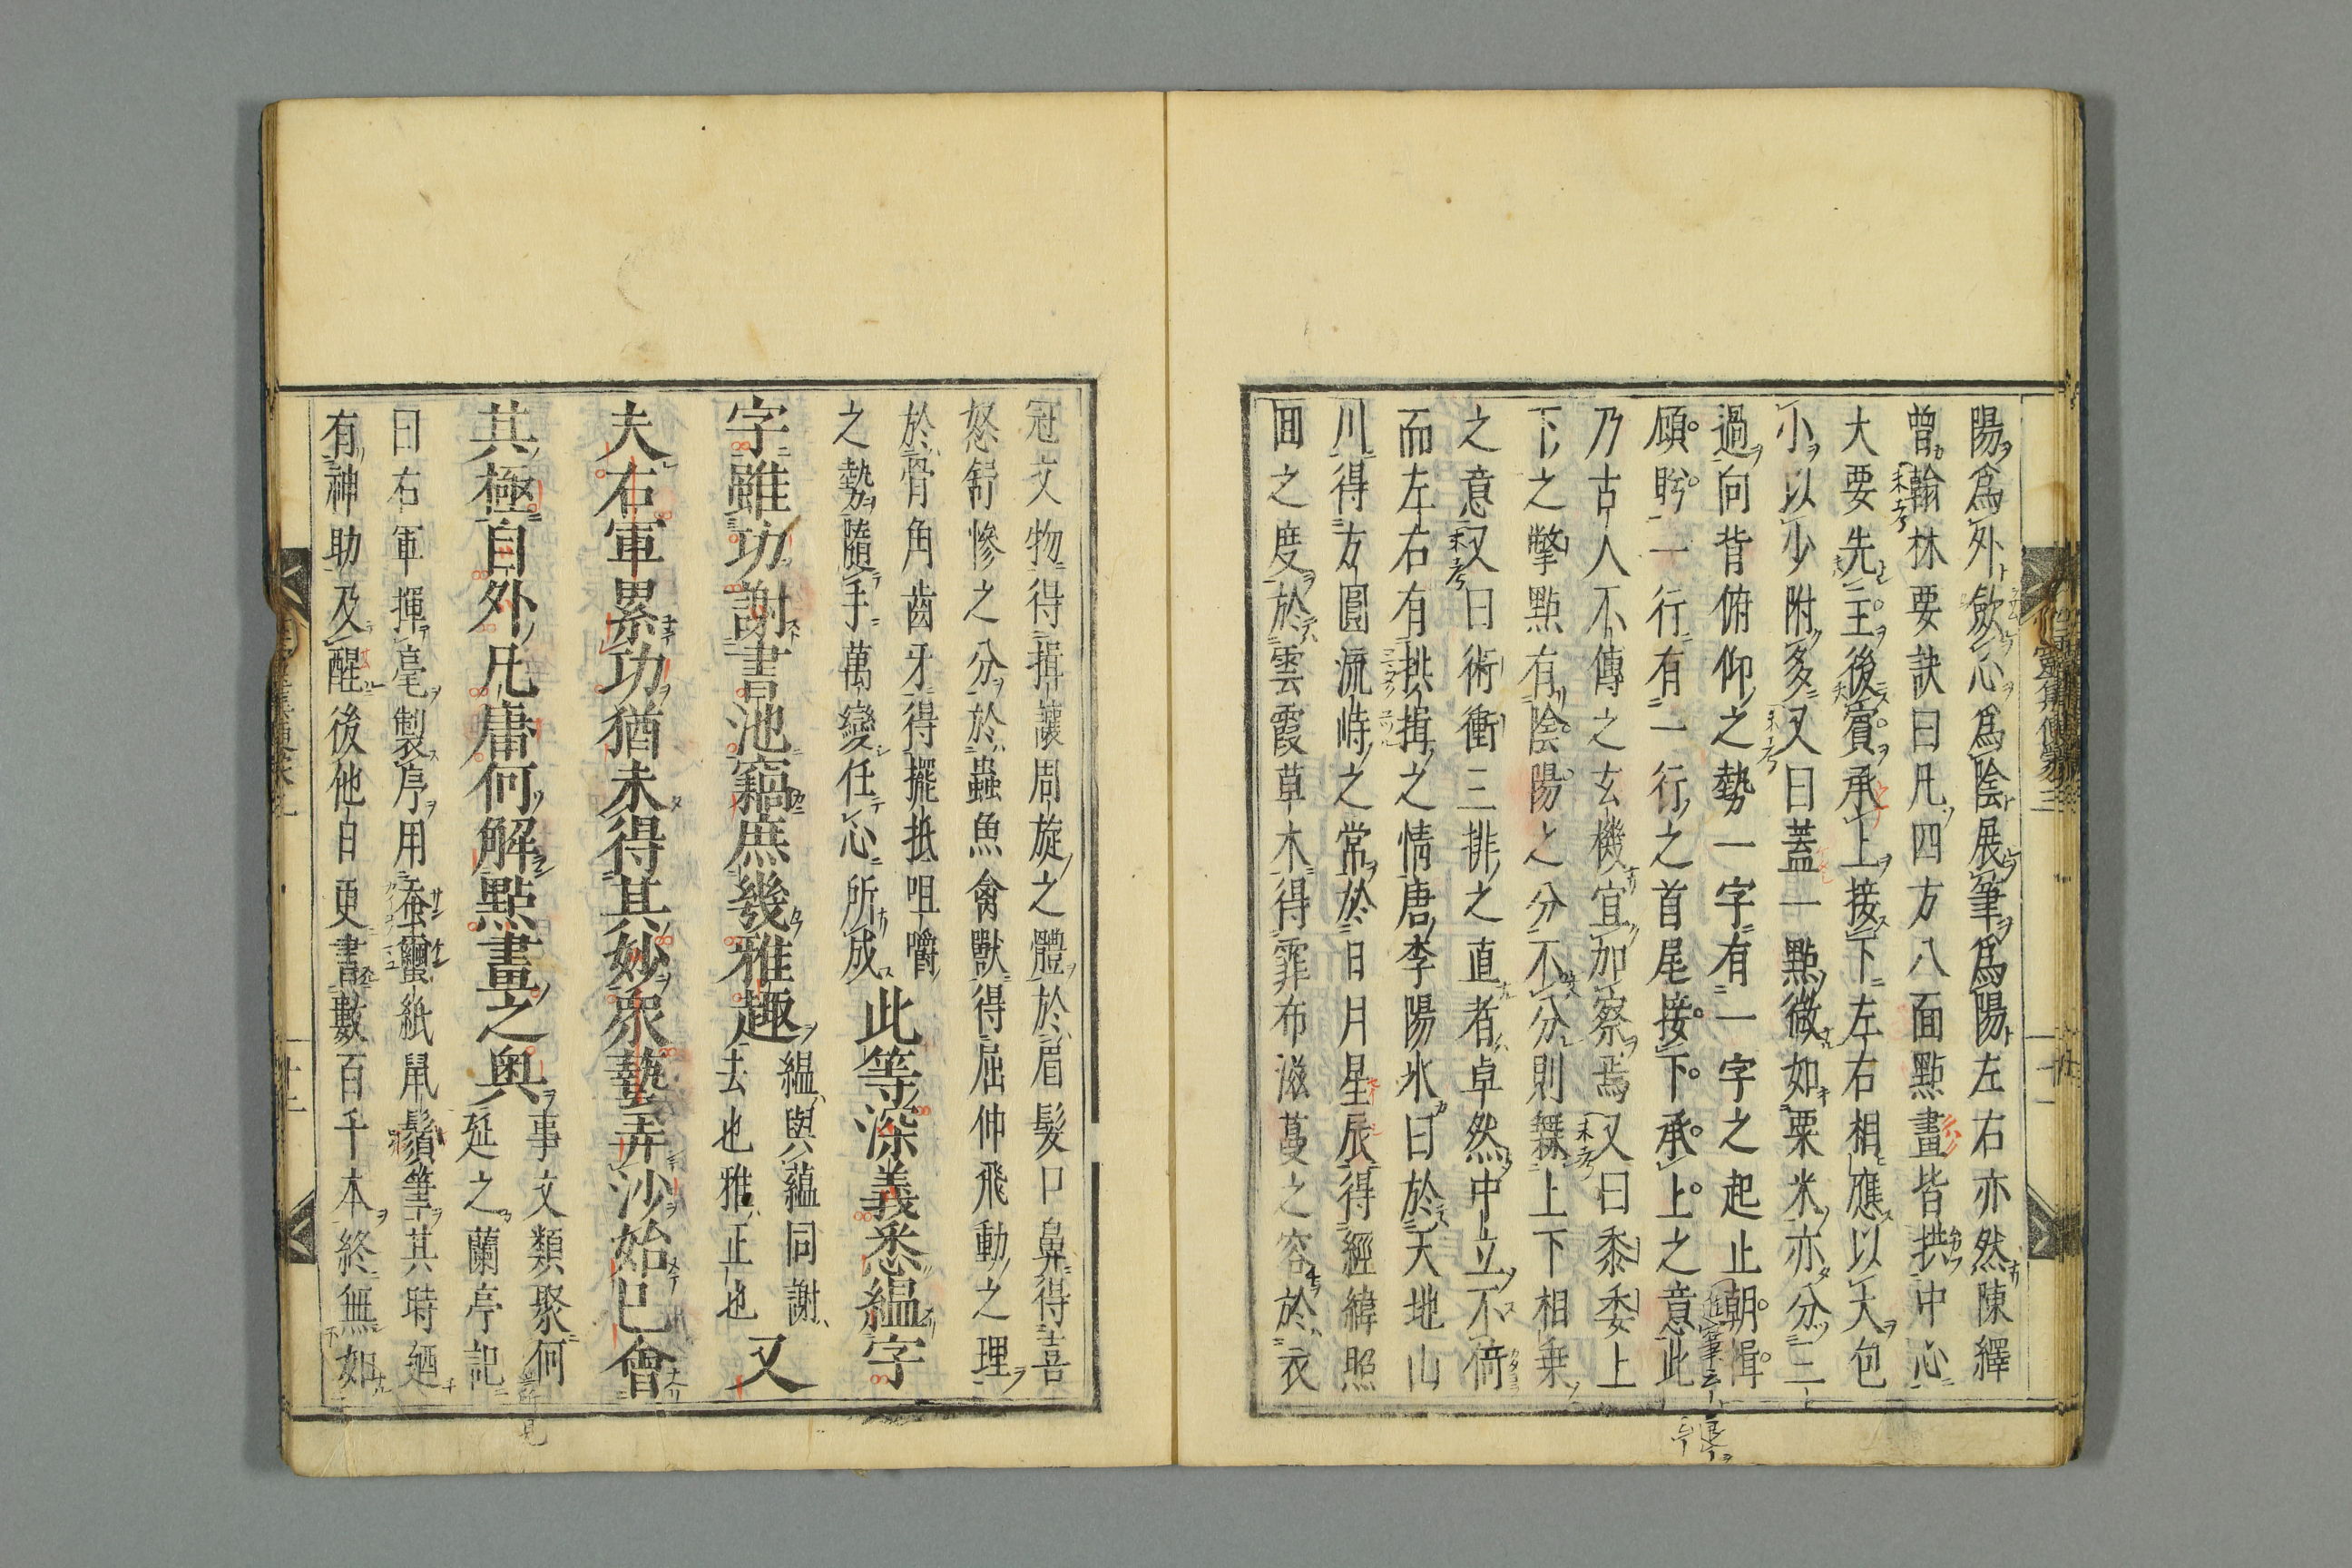 陽爲外歛心爲陰展筆爲陽左右亦然陳繹
曾翰林要訣曰凡四方八面點畫皆拱中心
大要先主後賓承上接下左右相應以大包
小以少附多又曰蓋一點微如粟米亦分三
過向背俯仰之勢一字有一字之起止朝揖
顧盻一行有一行之首尾接下承上之意此
乃古人不傳之玄機宜加察焉又曰黍委上
下之撆點有陰陽之分不分則無上下相乗
之意又曰術衝三排之直者卓然中立不倚
而左右有拱揖之情唐李陽氷曰於天地山
川得方圓流峙之常於日月星辰得經緯照
回之度於雲霞草木得霏布滋蔓之容於衣
冠文物得揖讓周旋之體於眉髮口鼻得喜
怒舒慘之分於蟲魚禽獸得屈伸飛動之理
於骨角齒牙得擺抵咀嚼
之勢隨手萬變任心所成
此等深義悉緼字
字雖功謝書池竊庶幾雅趣
緼與蘊同謝
去也雅正也
又
夫右軍累功猶未得其妙衆藝弄沙始已會
其極自外凡庸何解點畫之奥
事文類聚何
延之蘭亭記
曰右軍揮毫製序用蚕蠒紙鼠鬚筆其時廼
有神助及醒後他日更書數百千本終無如